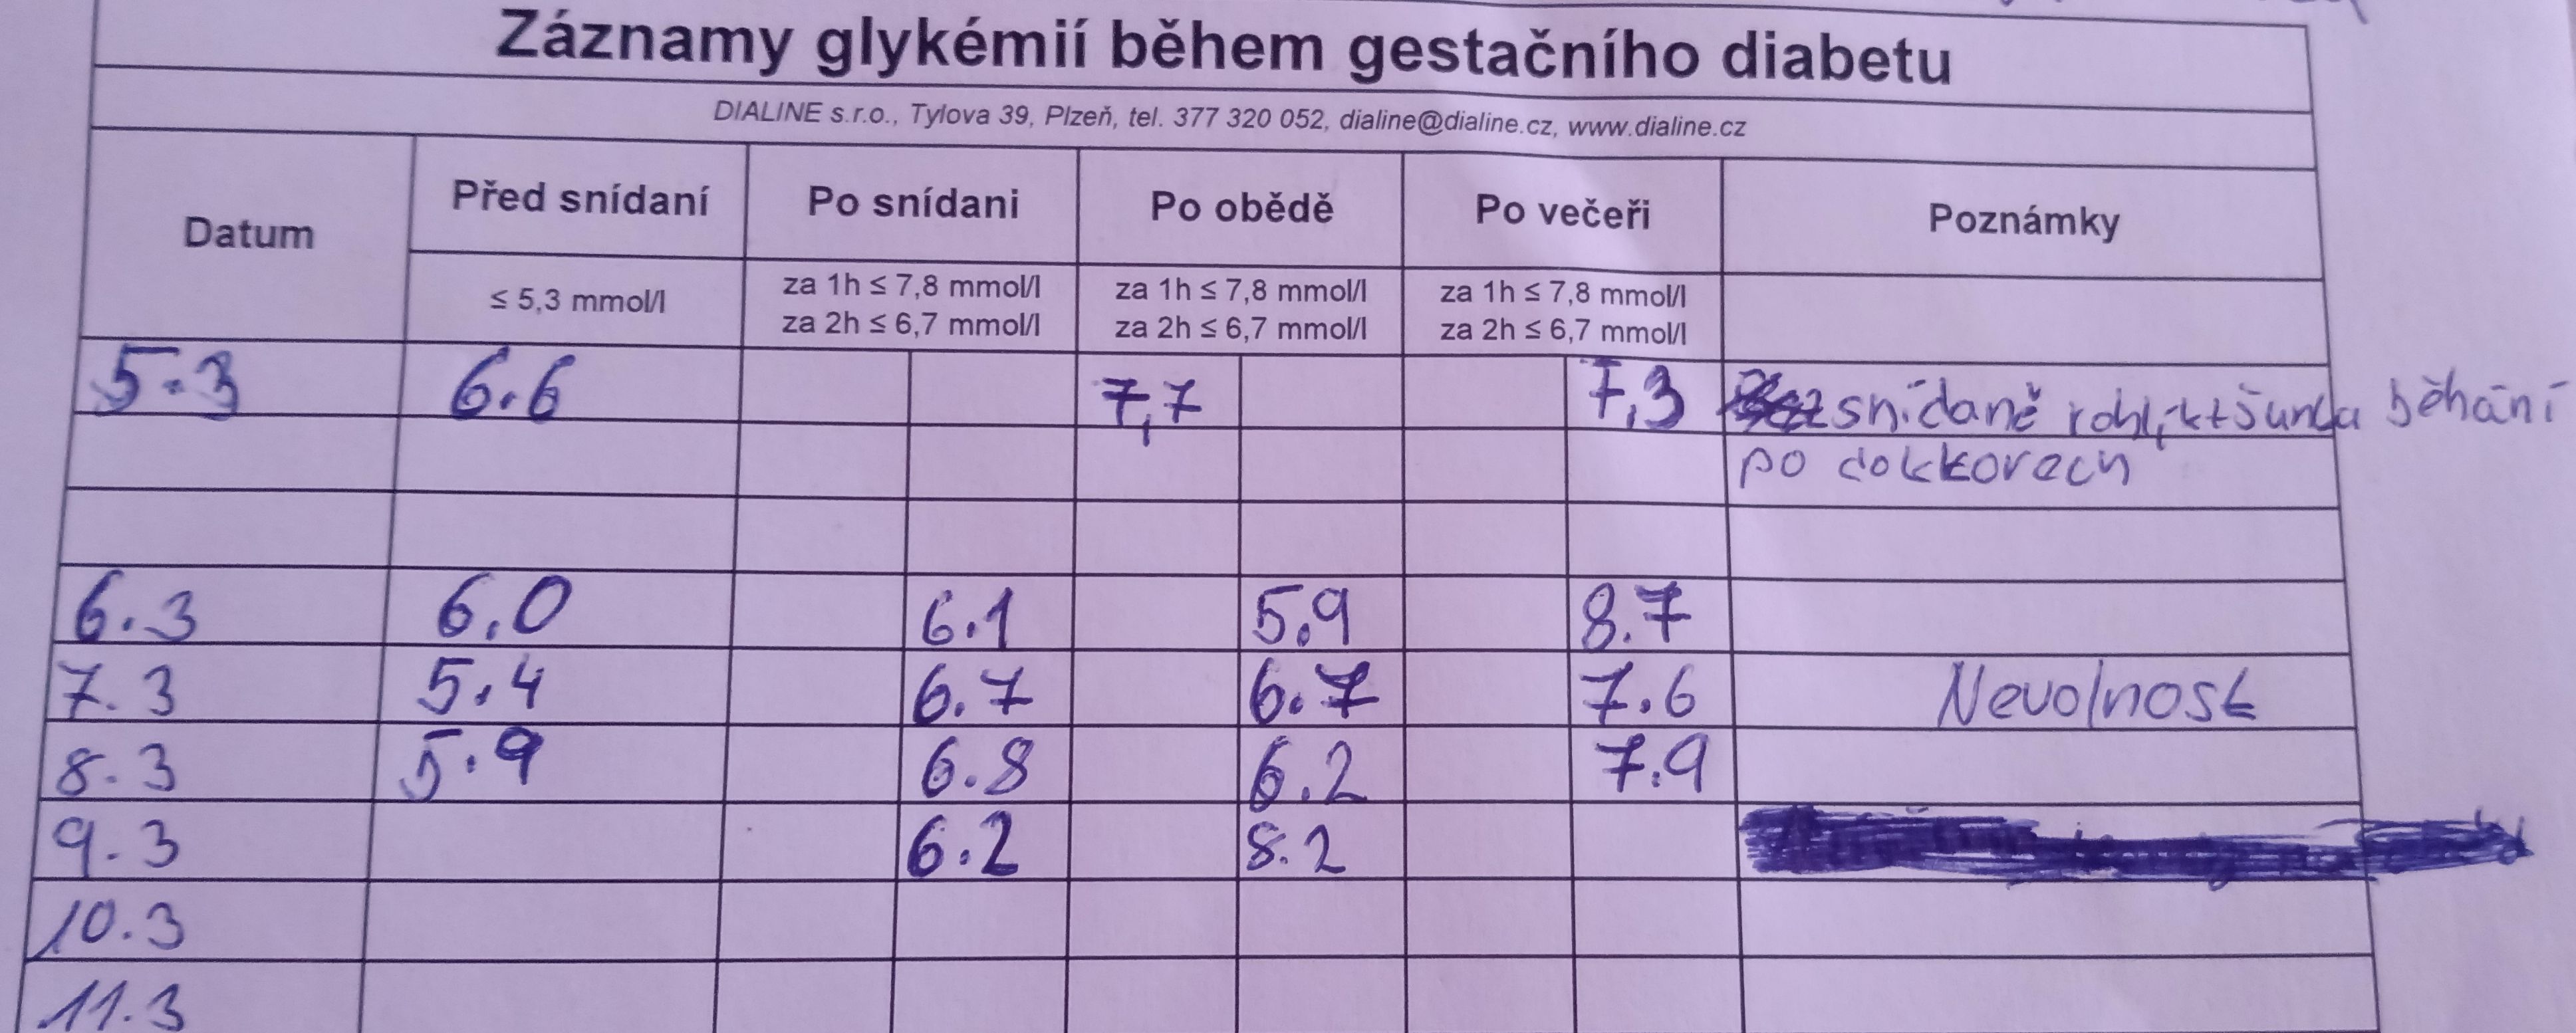 Záznamy glykémií během gestačního diabetu
DIALINE s.r.o., Tylova 39, Plzeň, tel. 377 320 052, dialine@dialine.cz, www.dialine.cz
Datum Před snídaní Po snídani Po obědě Po večeři Poznámky
≤ 5,3 mmol/l za 1h ≤ 7,8 mmol/l za 1h ≤ 7,8 mmol/l za 1h ≤ 7,8 mmol/l
za 2h ≤ 6,7 mmol/l za 2h ≤ 6,7 mmol/l za 2h ≤ 6,7 mmol/l
5.3 6.6 7,7 7,3 snídaně rohlík+šunka běhání
po doktorech
6.3 6.0 6.1 5.9 8.7
7.3 5.4 6.7 6.7 7.6 Nevolnost
8.3 5.9 6.8 6.2 7.9
9.3 6.2 8.2
10.3
11.3